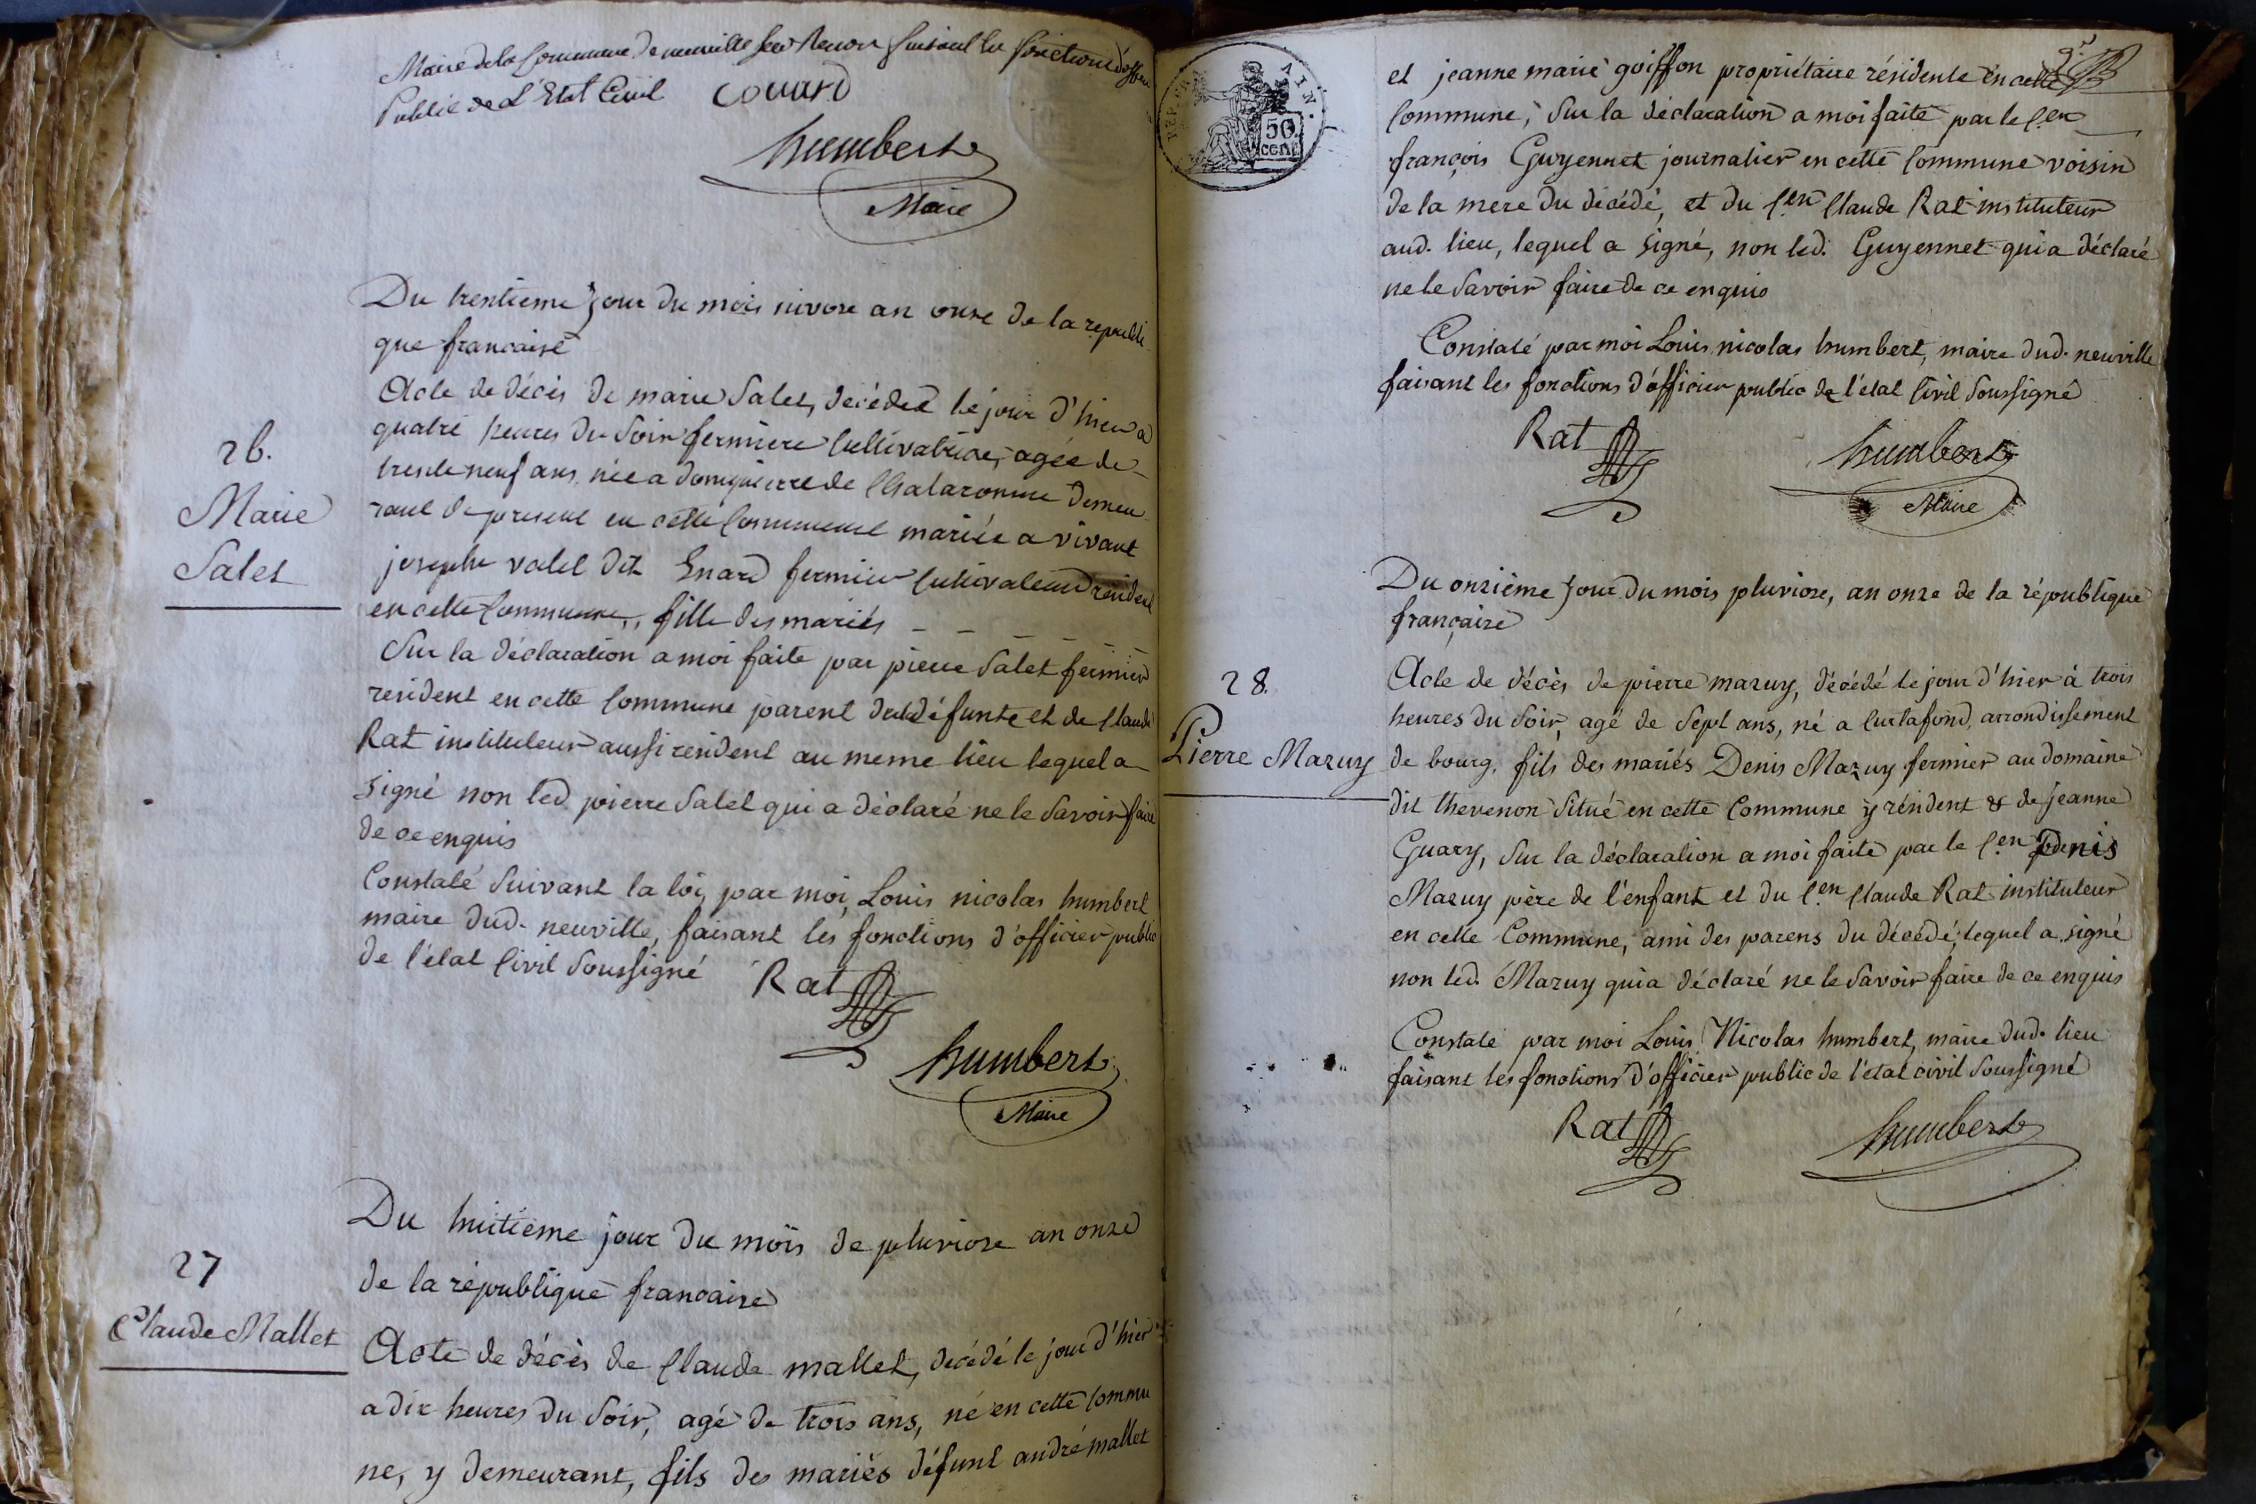 Maire de la Commune de neuville sur Renon faisant les fonctions d'officier
Public de L'Etat Civil couard
humbert
Maire
Du trentieme jour du mois nivose an onze de la republi
que francaise
26.
Marie
Salet
Acte de décès de marie Salet, décédée le jour d'hier a
quatre heures du Soir fermiere Cultivatrice, agée de
trente neuf ans, née a dompierre de Chalaronne demeu
rant de present en cette Commune mariée a vivant
joseph valet dit Enard fermier Cultivateur résident
en cette Commune, fille des mariés — — — — —
Sur la déclaration a moi faite par pierre Salet fermier
resident en cette Commune parent de la défunte et de Claude
Rat instituteur aussi resident au meme lieu lequel a
signé non led. pierre Salet qui a déclaré ne le Savoir faire
de ce enquis
Constaté Suivant la loi, par moi, Louis nicolas humbert
maire dud. neuville, faisant les fonctions d'officier public
de l'état Civil Soussigné Rat
humbert
Maire
Du huitieme jour du mois de pluviose an onze
de la république francaise
27
Claude Mallet
Acte de décès de Claude mallet, décédé le jour d'hier
a dix heures du Soir, agé de trois ans, né en cette Commu
ne, y demeurant, fils des mariés défunt andré mallet
AIN.
50
cent
et jeanne marie goiffon propriétaire résidente en cette
Commune, Sur la déclaration a moi faite par le C.en
françois Guyennet journalier en cette Commune voisin
de la mere du décédé, et du C.en Claude Rat instituteur
aud. lieu, lequel a signé, non led. Guyennet qui a déclaré
ne le Savoir faire de ce enquis
Constaté par moi Louis nicolas humbert, maire dud. neuville
faisant les fonctions d'officier public de l'état Civil Soussigné
Rat humbert
Maire
Du onzième jour du mois pluviose, an onze de la république
française
28.
Pierre Mazuy
Acte de décès de pierre mazuy, décédé le jour d'hier à trois
heures du Soir, agé de Sept ans, né a Curtafond, arrondissement
de bourg, fils des mariés Denis Mazuy fermier au domaine
dit thevenon Situé en cette Commune y résident & de jeanne
Guary, Sur la déclaration a moi faite par le C.en Denis
Mazuy père de l'enfant et du C.en Claude Rat instituteur
en cette Commune, ami des parens du décédé, lequel a signé
non led. Mazuy qui a déclaré ne le Savoir faire de ce enquis
Constaté par moi Louis Nicolas humbert, maire dud. lieu
faisant les fonctions d'officier public de l'état civil Soussigné
Rat humbert